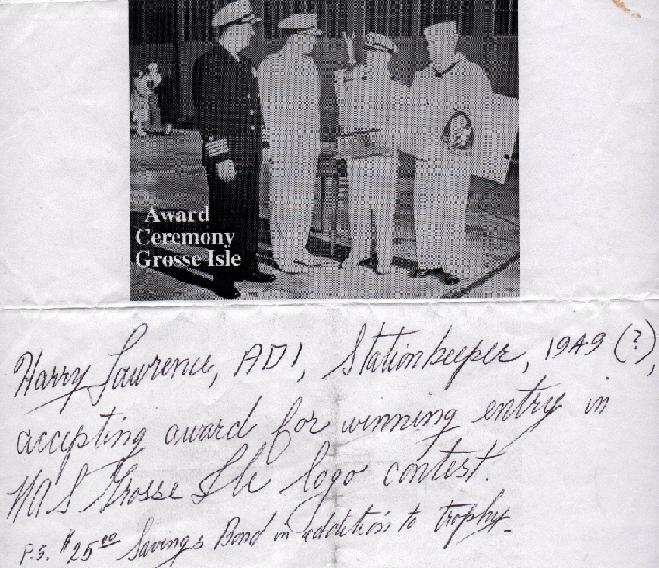 Award
Ceremony
Grosse Isle
Harry Lawrence, AD1, Stationkeeper, 1949 (?),
accepting award for winning entry in
NAS Grosse Ile logo contest.
P.S. $25.00 Savings Bond in addition to trophy.